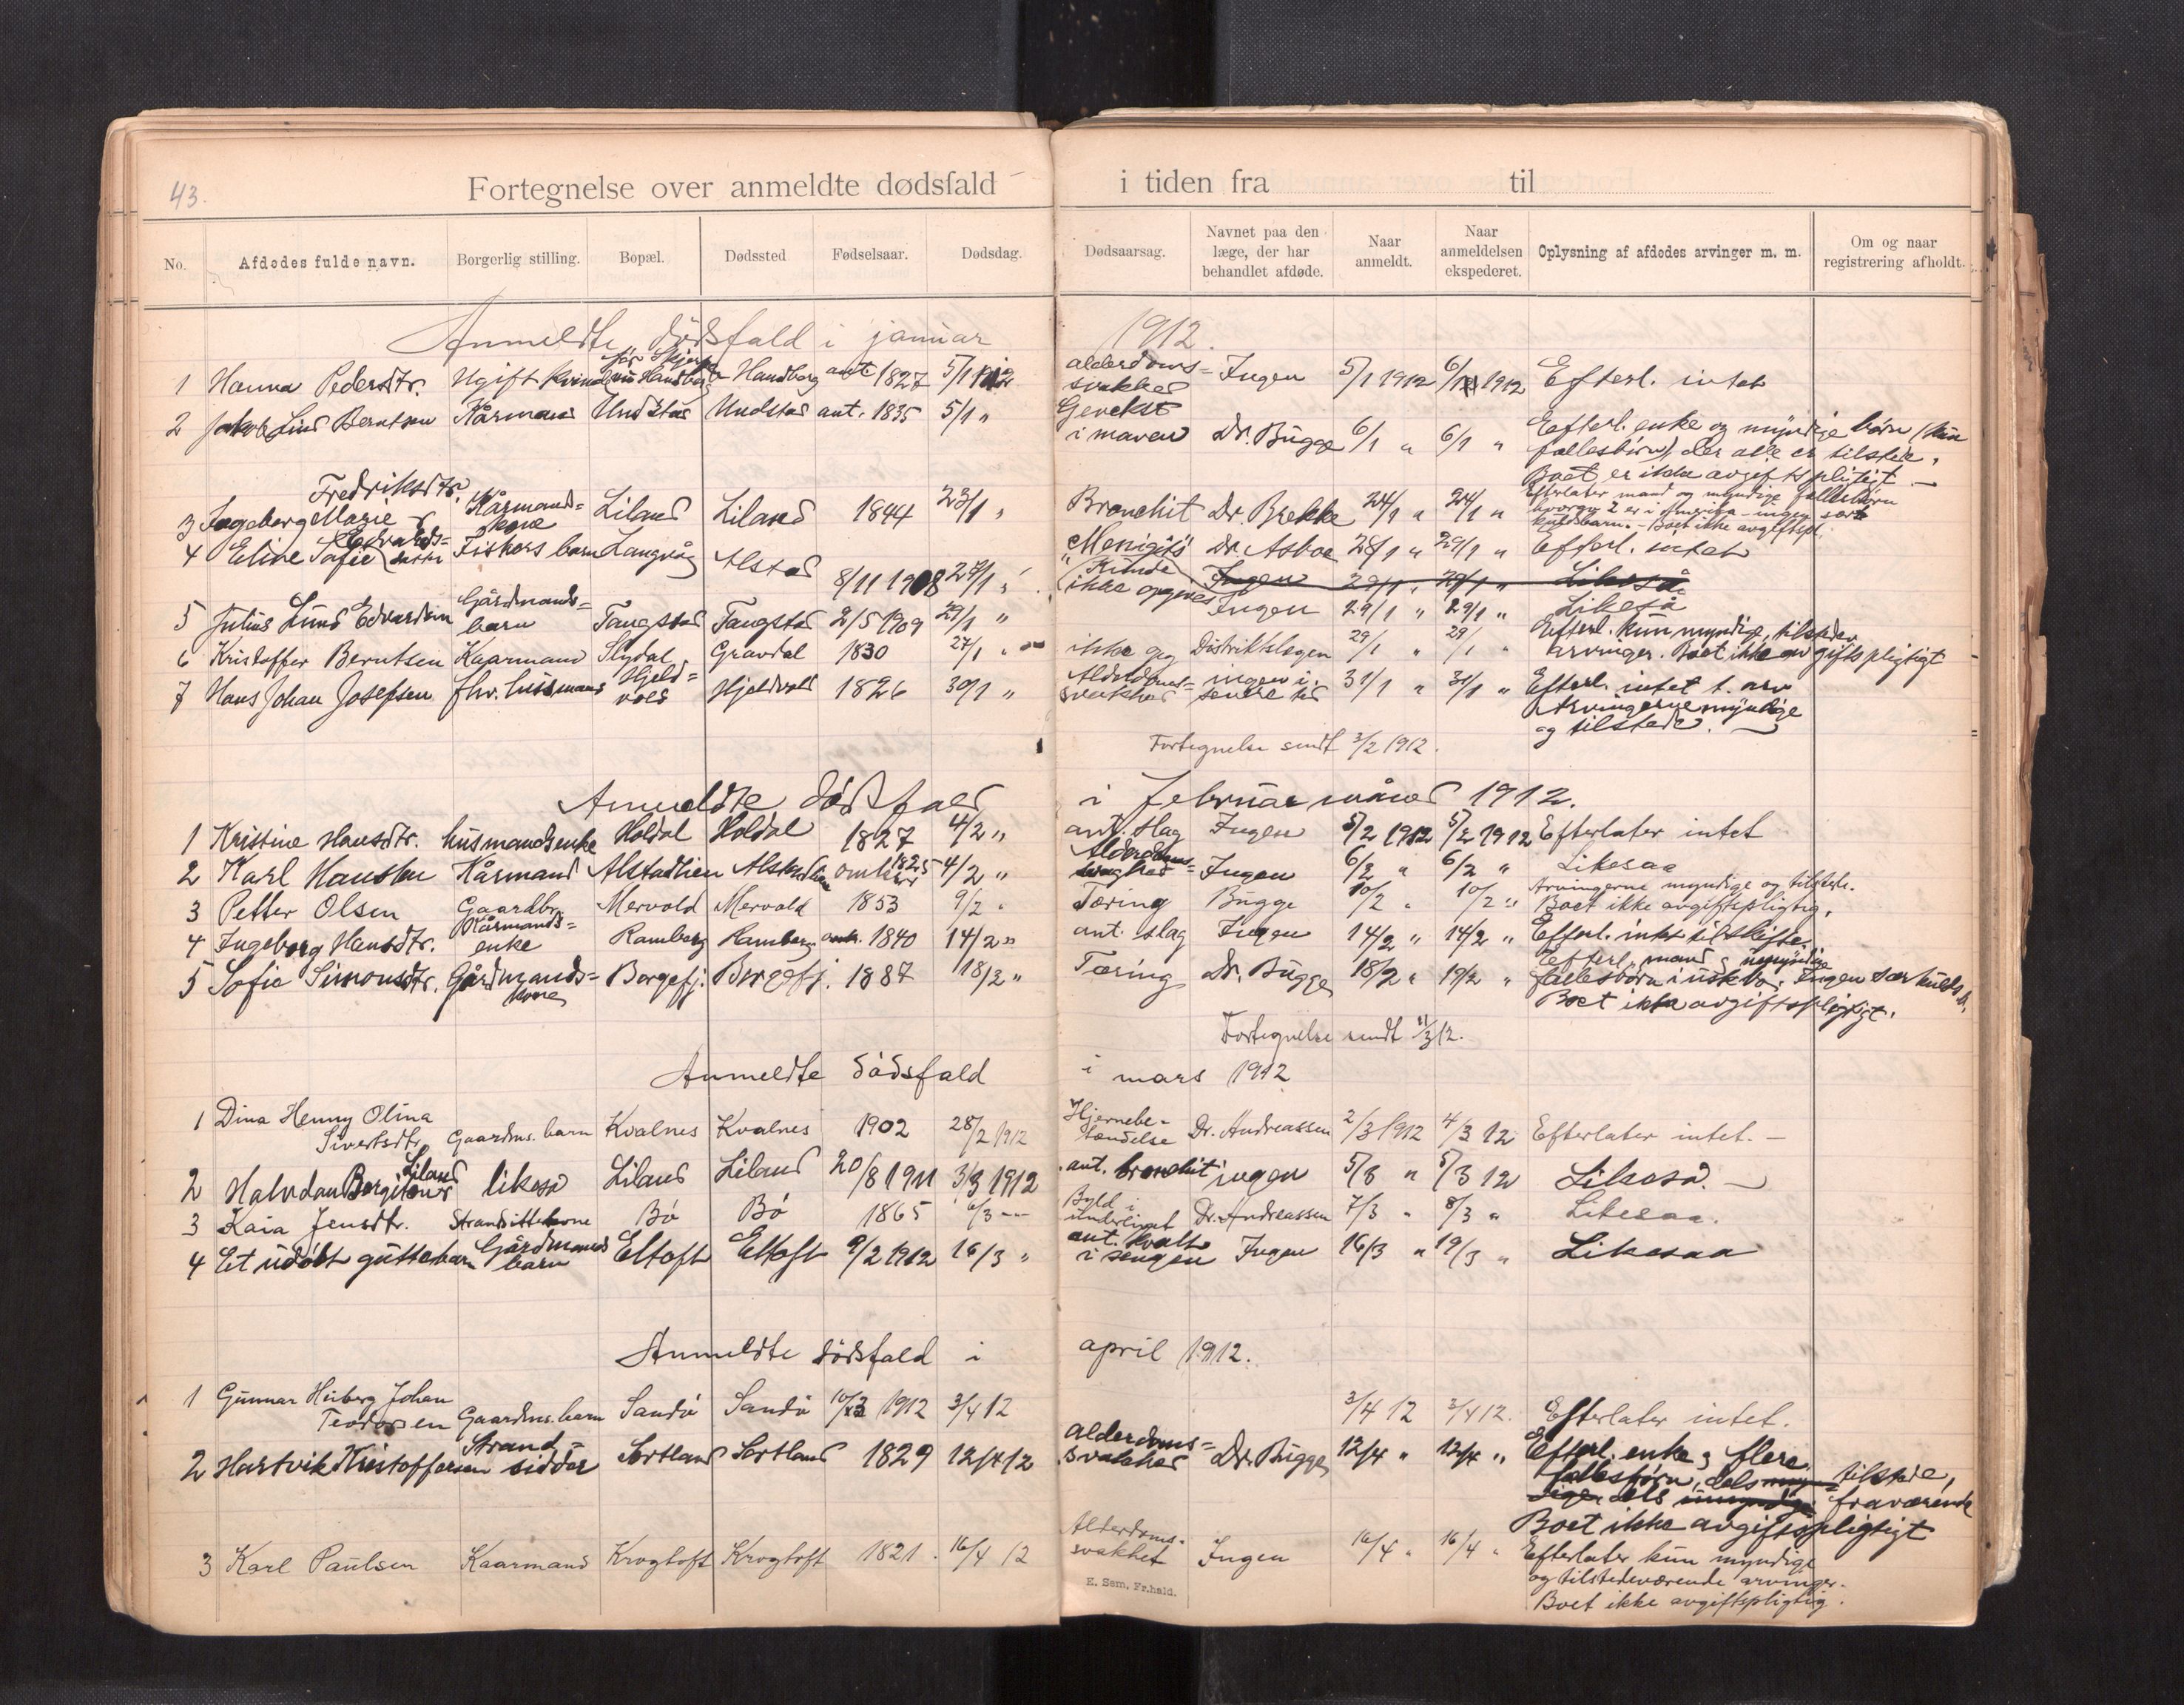 43.
Fortegnelse over anmeldte dødsfald
i tiden fra til
No. Afdødes fulde navn. Borgerlig stilling. Bopæl. Dødssted Fødselsaar. Dødsdag.
Dødsaarsag. Navnet paa den læge, der har behandlet afdøde. Naar anmeldt. Naar anmeldelsen ekspederet. Oplysning af afdødes arvinger m. m. Om og naar registrering afholdt.
Anmeldte dødsfald i januar 1912.
1 Hanna Pedersdtr. Ugift kvinde Handberg ant 1827 5/1 1912 alderdoms= svakhed Ingen 5/1 1912 6/1 1912 Efterl. intet
2 Jakob Lind Berntsen Kårmand Undstad Undstad ant. 1835 5/1 " Gevekst i maven Dr. Bugge 6/1 " 6/1 " Efterl. enke og myndige børn (kun
fællesbørn) der alle er tilstede.
Boet er ikke avgiftspligtigt —
3 Ingeborg Marie Fredriksdtr. Kårmands= kone Liland Liland 1844 23/1 " Bronchit Dr. Brekke 24/1 " 24/1 " Efterlater mand og myndige fællesbørn
hvorav 2 er i Amerika - ingen sær=
kuldsbarn. - Boet ikke avgiftspl.
4 Eline Sofie Edvards= datter Fiskers barn Langvåg Alstad 8/11 1908 27/1 " "Menigit" Dr. Asboe 28/1 " 29/1 " Efterl. intet
Ingen 29/1 " 29/1 " Likeså
5 Julius Lund Edvardsen Gårdmands= barn Tangstad Tangstad 2/5 1909 29/1 " ikke opgives Ingen 29/1 " 29/1 " Likeså
6 Kristoffer Berntsen Kaarmand Slydal Gravdal 1830 27/1 " ikke og Distriktslægen 29/1 " 29/1 " Efterl. kun myndige, tilstedev
arvinger. Boet ikke avgiftspligtigt
7 Hans Johan Josefsen fhv. husmand Hjeld= vold Hjeldvold 1826 30/1 " Alderdoms= svakhed ingen i senere tid 31/1 " 31/1 " Efterl. intet t. arv
Arvingerne myndige
og tilstede.
Fortegnelse sendt 3/2 1912.
Anmeldte dødsfald i februar måned 1912.
1 Kristine Hansdtr. husmandsenke Holdal Holdal 1827 4/2 " ant. slag Ingen 5/2 1912 5/2 1912 Efterlater intet
2 Karl Hansen Kårmand Alstadlien Alstadlien omkr 1825 4/2 " Alderdoms= svaghed Ingen 6/2 " 6/2 " Likesaa
3 Petter Olsen Gaardbr. Mervold Mervold 1853 9/2 " Tæring Bugge 10/2 " 10/2 " Arvingerne myndige og tilstede.
Boet ikke avgiftspligtig.
4 Ingeborg Hansdtr. Kårmands= enke Ramberg Ramberg ant. 1840 14/2 " ant. slag Ingen 14/2 " 14/2 " Efterl. intet til skifte
5 Sofie Simonsdtr. Gårdmands= kone Borgefj. Borgefj. 1887 18/2 " Tæring Dr. Bugge 18/2 " 19/2 " Efterl. mand & umyndige
fællesbørn i uskbo. Ingen særkulds b.
Boet ikke avgiftspligtigt.
Fortegnelse sendt 11/3 12.
Anmeldte dødsfald i mars 1912
1 Dina Henny Olina Sivertsdtr. Gaardms. barn Kvalnes Kvalnes 1902 28/2 1912 Hjernebe- tændelse Dr. Andreassen 2/3 1912 4/3 12 Efterlater intet. —
2 Halvdan Bergitens Liland likeså Liland Liland 20/8 1911 3/3 1912 ant. bronchit ingen 5/3 " 5/3 12 Likeså. —
3 Kaia Jensdtr. Strandsitterkone Bø Bø 1865 6/3 — Byld i underlivet Dr. Andreassen 7/3 " 8/3 " Likesaa.
4 Et udøbt guttebarn Gårdmands barn Eltoft Eltoft 9/2 1912 16/3 " ant. kvalt i sengen Ingen 16/3 " 19/3 " Likesaa
Anmeldte dødsfald i april 1912.
1 Gunnar Huberg Johan Teodorsen Gaardms. barn Sandø Sandø 10/3 1912 3/4 12 3/4 12 3/4 12. Efterlater intet.
2 Hartvik Kristoffersen Strand= sidder Sortland Sortland 1829 12/4 12 Alderdoms= svakhed Dr. Bugge 12/4 " 12/4 " Efterl. enke & flere
fællesbørn, dels tilstede,
dels fraværende
Boet ikke avgiftspligtigt
3 Karl Paulsen Kaarmand Krogtoft Krogtoft 1821. 16/4 12 Alderdoms- svakhet Ingen 16/4 " 16/4 " Efterlater kun myndige
og tilstedeværende arvinger.
Boet ikke avgiftspligtig.
E. Sem, Fr.hald.